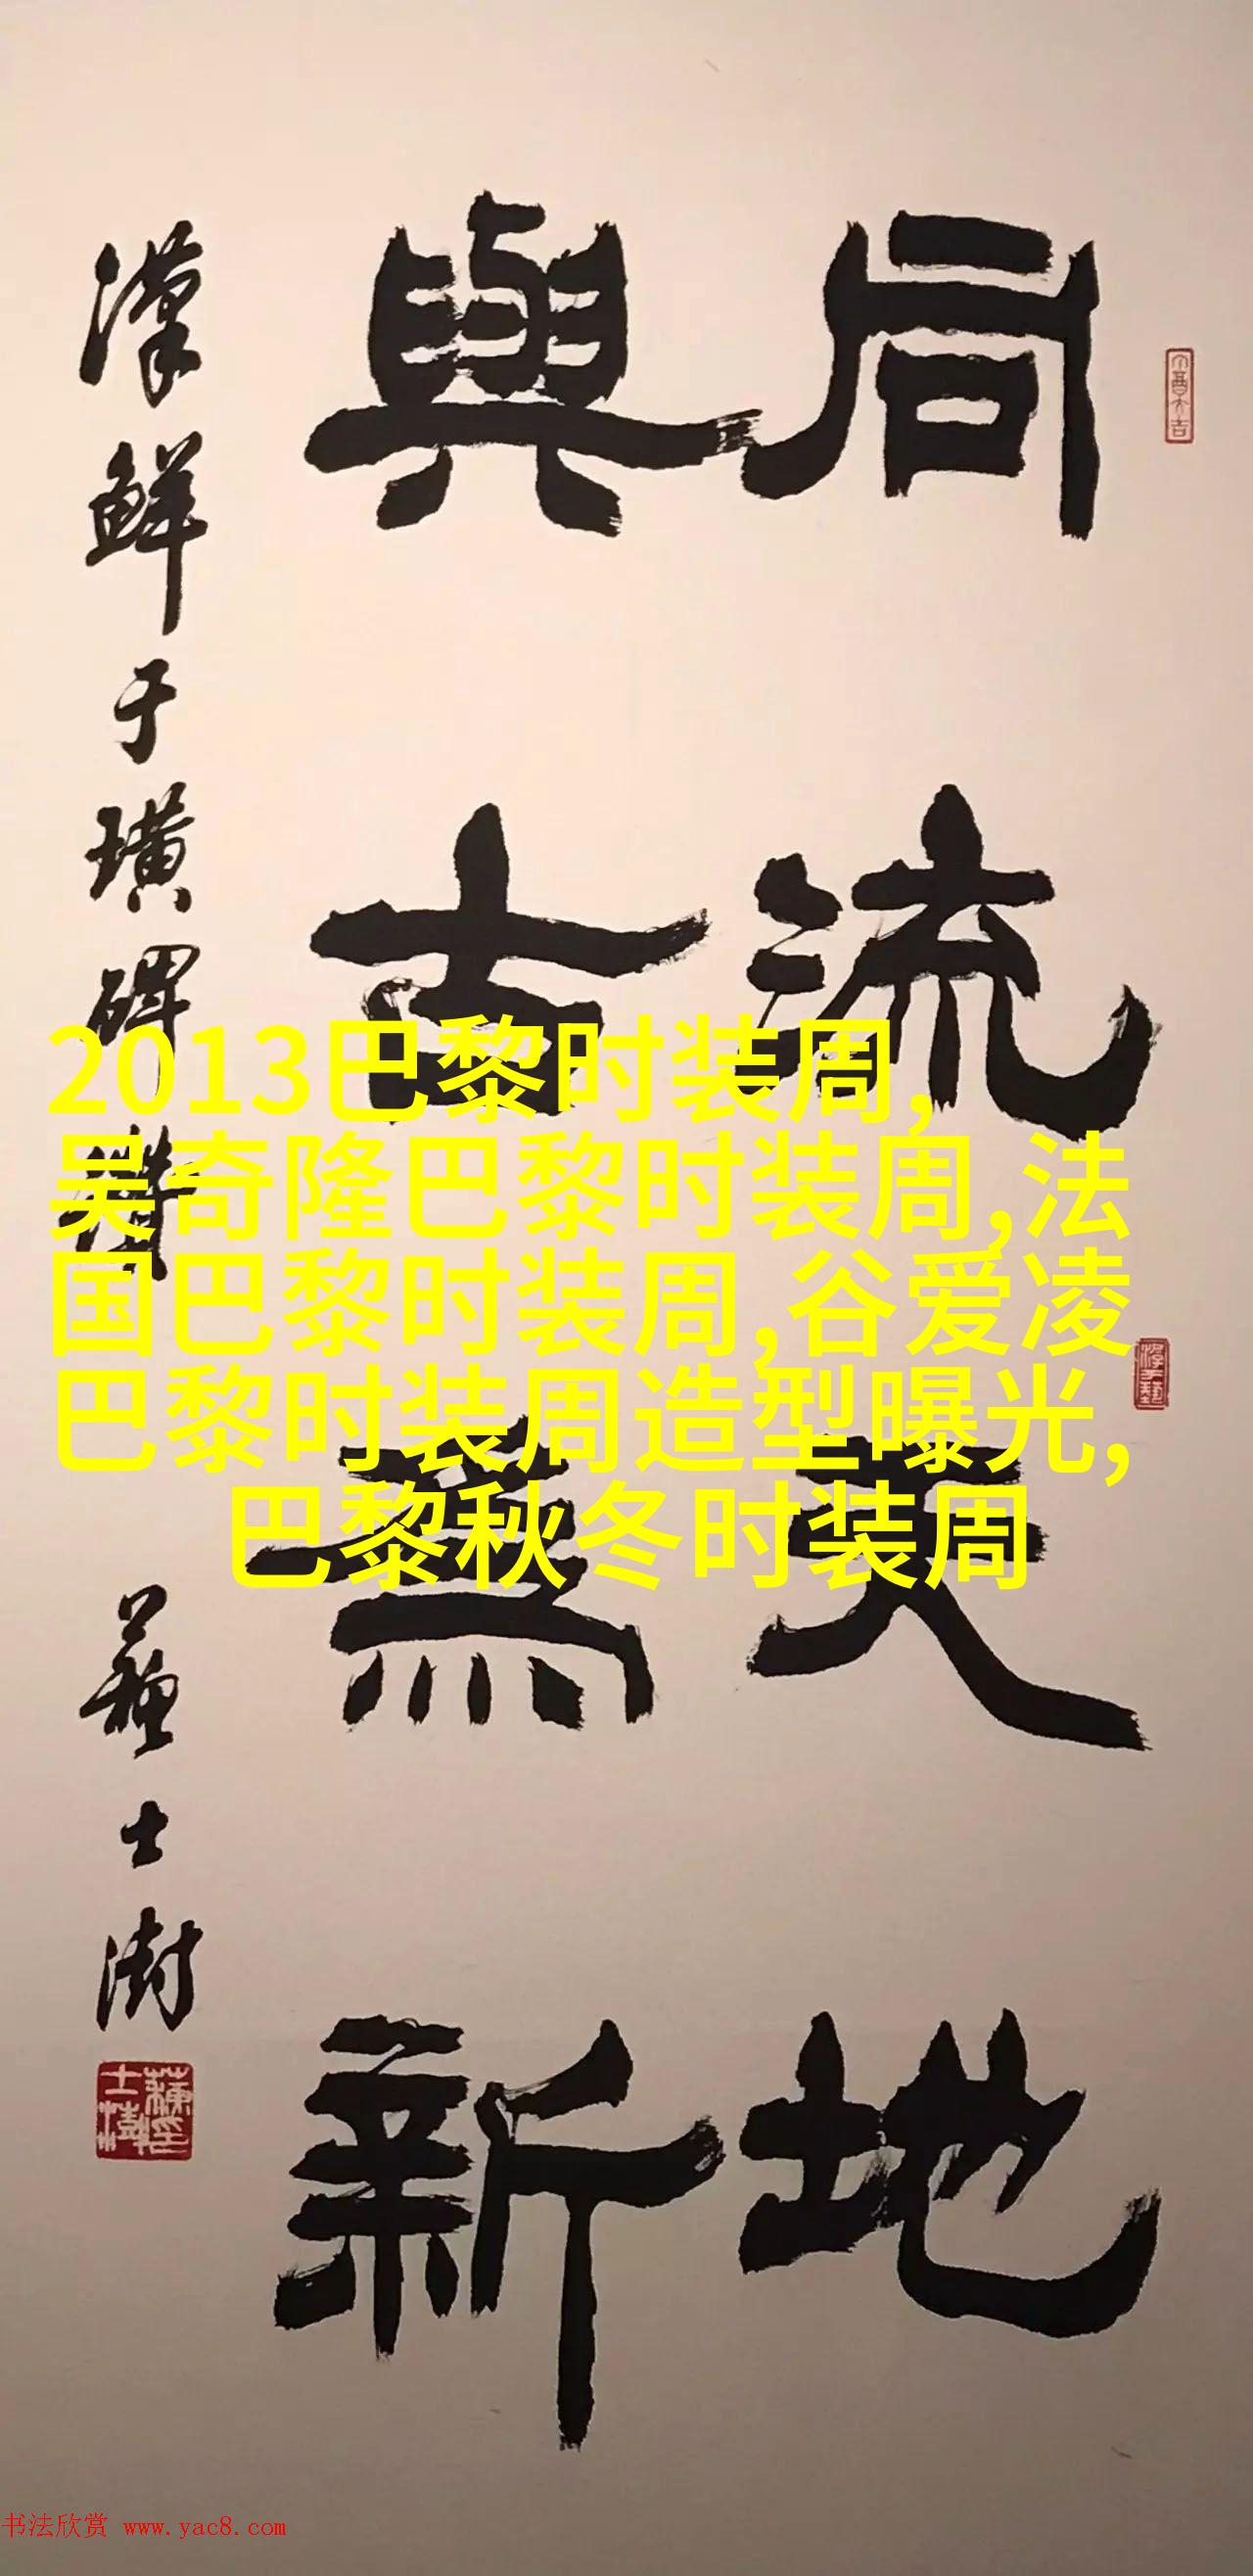 同流天地
與古為新
漢鮮于璜碑
蘇士澍
2013巴黎时装周,
吴奇隆巴黎时装周,法
国巴黎时装周,谷爱凌
巴黎时装周造型曝光,
巴黎秋冬时装周
书法欣赏 www.yac8.com